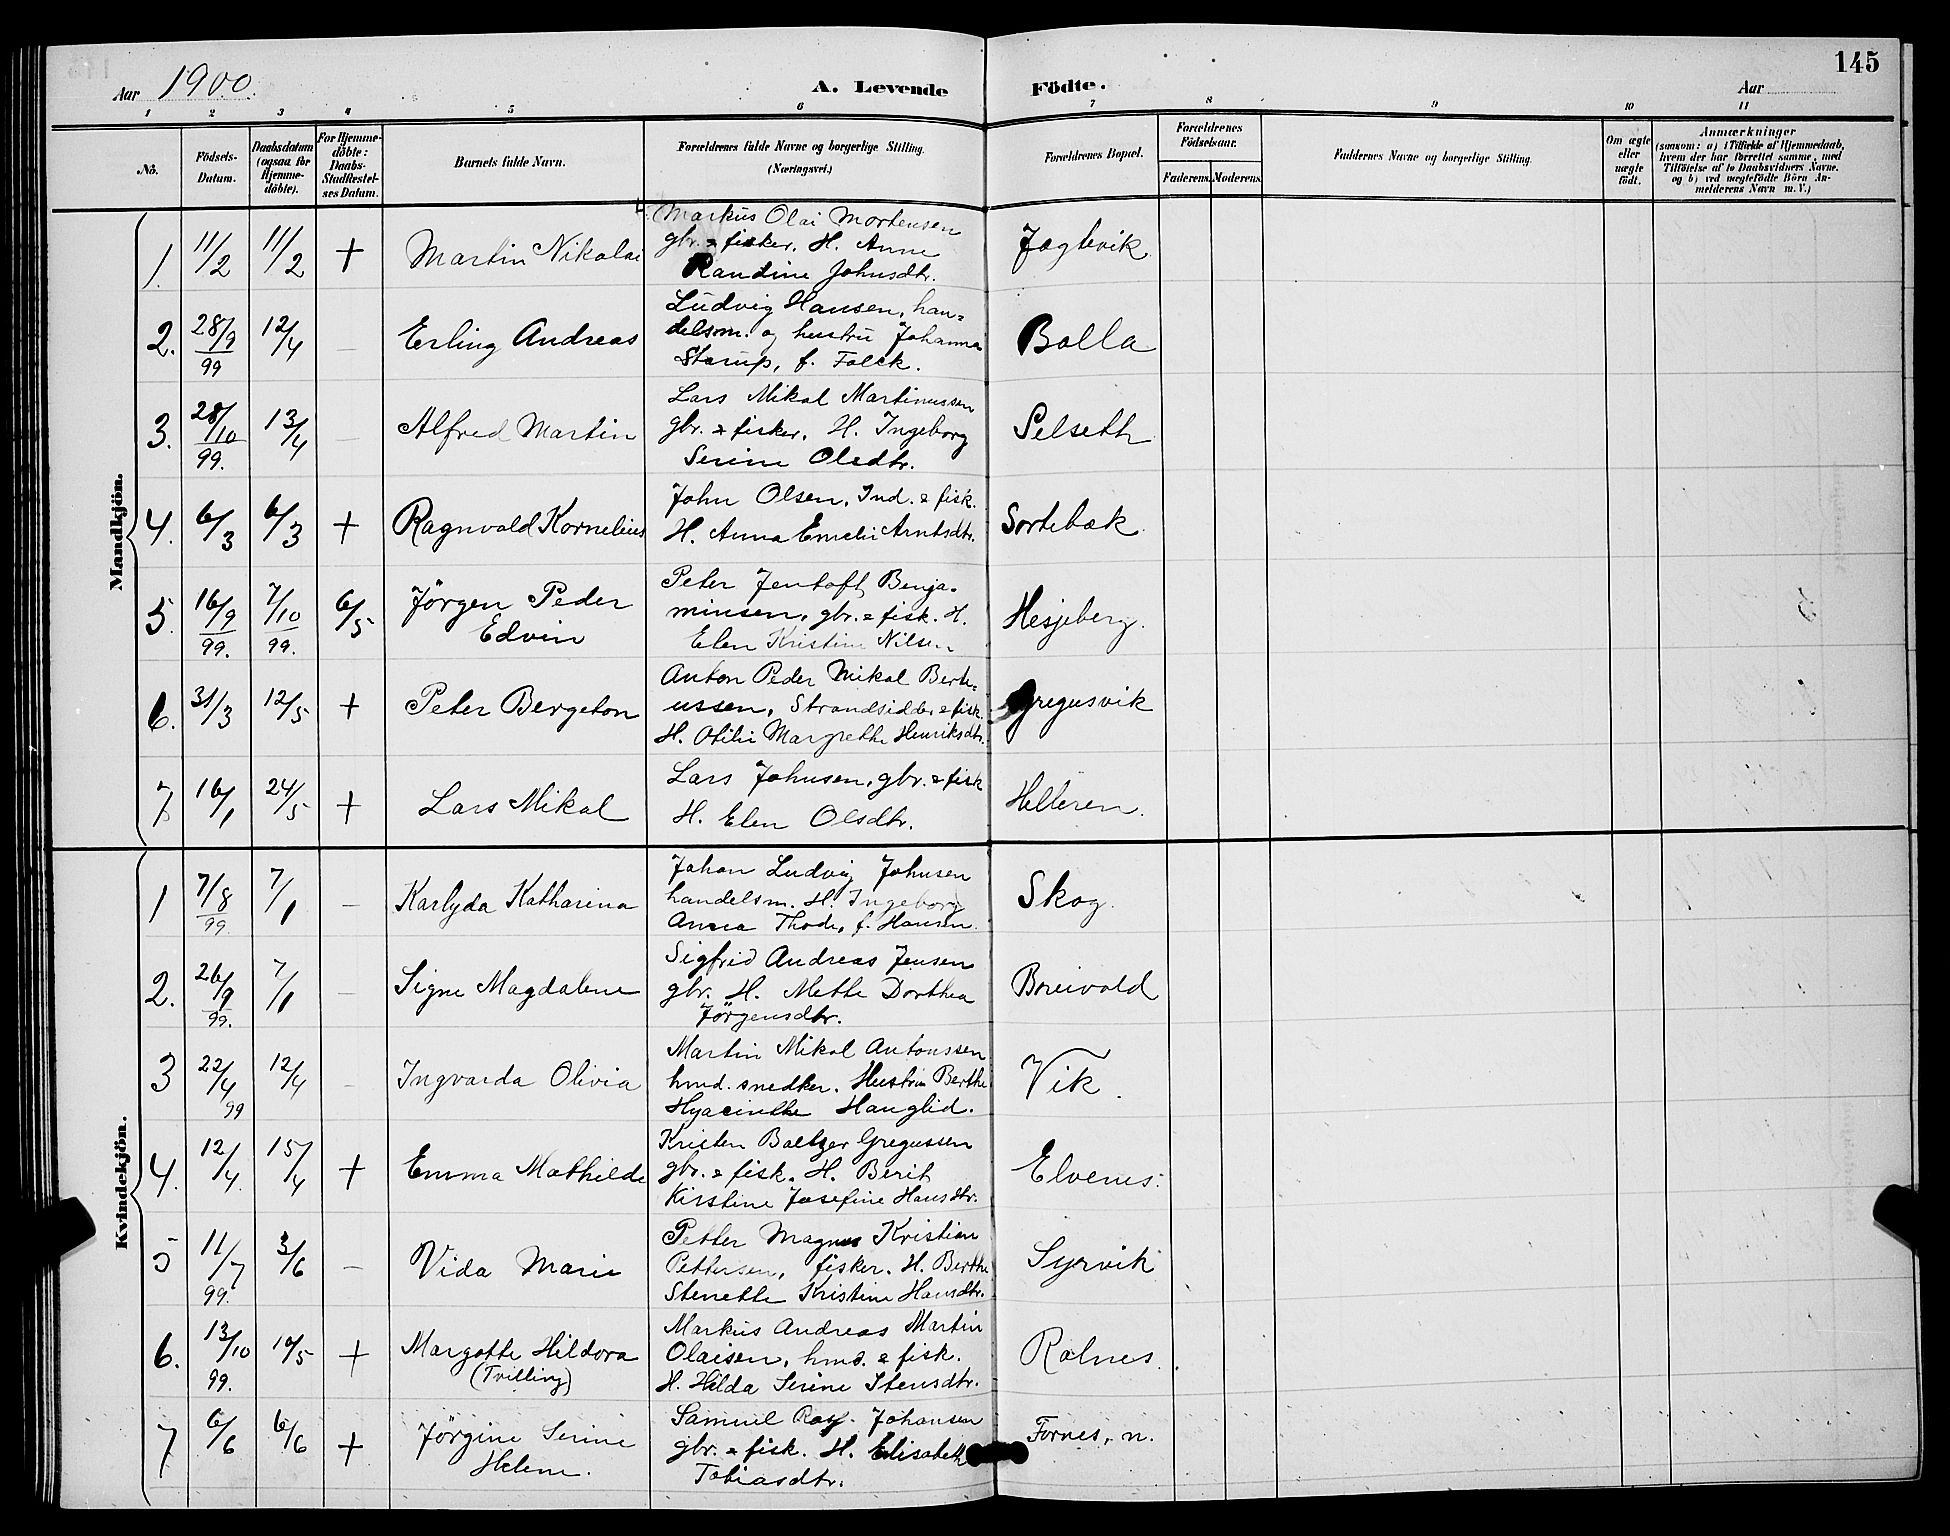 145
Aar 1900. A. Levende Födte. Aar
1 2 3 4 5 6 7 8 9 10 11
No. Födsels-Datum. Daabsdatum (ogsaa for Hjemme-döbte). For Hjemme-döbte: Daabs-Stadfæstel-ses Datum. Barnets fulde Navn. Forældrenes fulde Navne og borgerlige Stilling. (Næringsvei.) Forældrenes Bopæl. Forældrenes Födselsaar. Faderens. Moderens. Faddernes Navne og borgerlige Stilling. Om ægte eller uægte födt. Anmærkninger (saasom: a) i Tilfælde af Hjemmedaab, hvem der har forrettet samme, med Tilföielse af to Daabsvidners Navne, og b) ved uægtefödte Börn An-melderens Navn m. V.)
Mandkjön.
1. 11/2 11/2 + Martin Nikolai Markus Olai Mortensen
gbr. & fisker. H. Anne
Randine Johnsdtr. Jægtvik
2. 28/9 99 12/4 — Erling Andreas Ludvig Hansen, han-
delsm. og hustru Johanna
Starup, f. Falck. Bolla
3. 28/10 99. 13/4 — Alfred Martin Lars Mikal Martinussen
gbr. & fisker. H. Ingeborg
Serine Olsdtr. Selseth
4. 6/3 6/3 + Ragnvald Kornelius John Olsen, Ind. & fisk.
H. Anna Emelie Arntsdtr. Sortebæk
5. 16/9 99. 7/10 99. 6/5 Jörgen Peder
Edvin Peter Jentoft Benja-
minsen, gbr. & fisk. H.
Elen Kristine Nilsen Hesjeberg.
6. 31/3 12/5 + Peter Bergeton Anton Peder Mikal Berte-
ussen, Strandsidder & fisk.
H. Otilie Margrethe Henriksdtr. Gregusvik
7 16/1 24/5 + Lars Mikal Lars Johnsen, gbr. & fisk
H. Elen Olsdtr. Helleren.
Kvindekjön.
1 7/8 99. 7/1 — Karlyda Katharina Johan Ludvig Johnsen
handelsm. H. Ingeborg
Anna Thode, f. Hansen. Skog.
2. 26/9 99. 7/1 — Signe Magdalene Sigfrid Andreas Jensen
gbr. H. Mette Dorthea
Jörgensdtr. Breivold
3 22/4 99 12/4 — Ingvarda Olivia Martin Mikal Antonssen
hmd. snedker. Hustru Berthe
Hyacinthe Hanglid. Vik.
4. 12/4. 15/4 + Emma Mathilde Kristen Baltzer Gregussen
gbr. & fisk. H. Berit
Kirstine Josefine Hansdtr. Elvenes.
5 11/7 99. 3/6 — Vida Marie Petter Magnus Kristian
Pettersen, fisker. H. Berthe
Stenette Kristine Hansdtr. Syrvik
6. 13/10 99. 10/5 + Margothe Hildora
(Tvilling) Markus Andreas Martin
Olaisen, hmd. & fisk.
H. Hilda Serine Stensdtr. Rolnes.
7 6/6 6/6 + Jörgine Serine
Helene. Samuel Johansen
gbr. & fisk. H. Elisabeth
Tobiasdtr. Fornes, n.